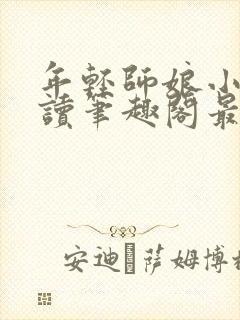 年轻师娘小
讀筆趣阁最
安迪·萨姆博